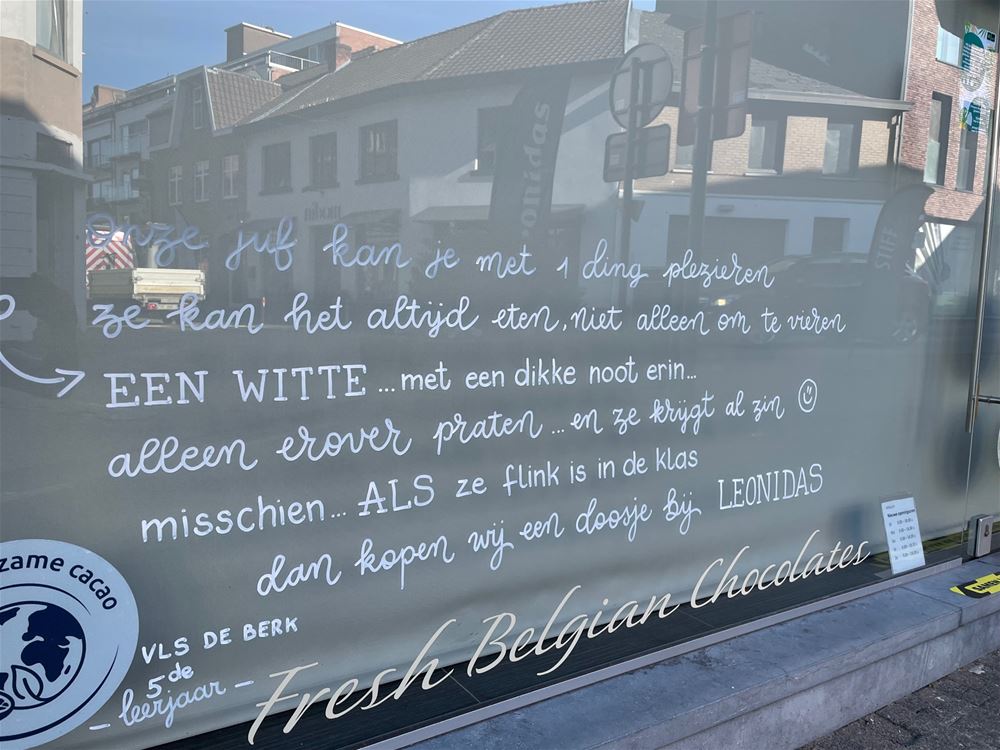 Onze juf kan je met 1 ding plezieren
ze kan het altijd eten, niet alleen om te vieren
EEN WITTE ... met een dikke noot erin...
alleen erover praten ... en ze krijgt al zin
misschien ... ALS ze flink is in de klas
dan kopen wij een doosje bij LEONIDAS
zame cacao
VLS DE BERK
5de
- leerjaar -
Fresh Belgian Chocolates